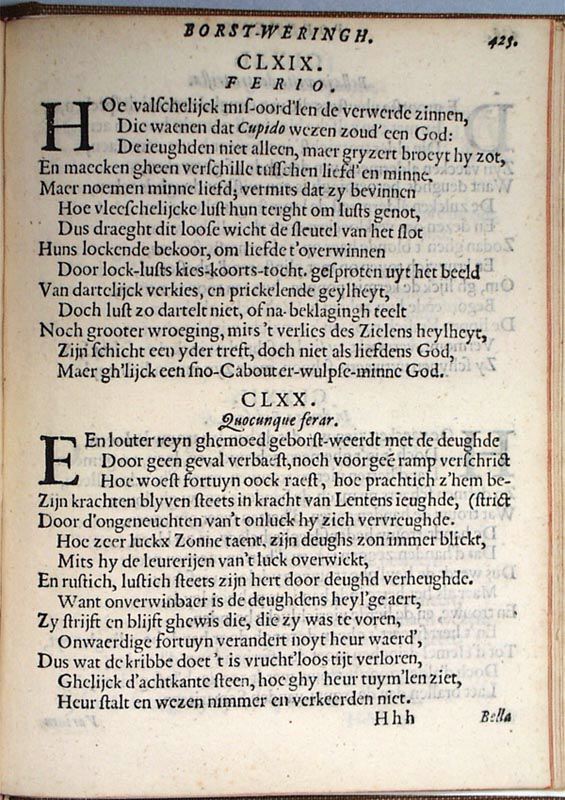 BORST-WERINGH.
425.
CLXIX.
FERIO.
HOe valſchelijck miſ-oord'len de verwerde zinnen,
Die waenen dat Cupido wezen zoud' een God:
De ieughden niet alleen, maer gryzert broeyt hy zot,
En maecken gheen verſchille tuſſchen liefd' en minne.
Maer noemen minne liefd, vermits dat zy bevinnen
Hoe vleeſchelijcke luſt hun terght om luſts genot,
Dus draeght dit looſe wicht de ſleutel van het ſlot
Huns lockende bekoor, om liefde t'overwinnen
Door lock-luſts kies-koorts-tocht. geſproten uyt het beeld
Van dartelijck verkies, en prickelende geylheyt,
Doch luſt zo dartelt niet, of na-beklagingh teelt
Noch grooter wroeging, mits 't verlies des Zielens heylheyt,
Zijn ſchicht een yder treft, doch niet als liefdens God,
Maer gh'lijck een ſno-Cabouter-wulpſe-minne God.
CLXX.
Quocunque ferar.
EEn louter reyn ghemoed geborſt-weerdt met de deughde
Door geen geval verbaeſt, noch voor geē ramp verſchrict
Hoe woeſt fortuyn oock raeſt, hoe prachtich z'hem be-
Zijn krachten blyven ſteets in kracht van Lentens ieughde, (ſtrict
Door d'ongeneuchten van't onluck hy zich vervreughde.
Hoe zeer luckx Zonne taent, zijn deughs zon immer blickt,
Mits hy de leurerijen van't luck overwickt,
En ruſtich, luſtich ſteets zijn hert door deughd verheughde.
Want onverwinbaer is de deughdens heyl'ge aert,
Zy ſtrijſt en blijſt ghewis die, die zy was te voren,
Onwaerdige fortuyn verandert noyt heur waerd',
Dus wat de kribbe doet 't is vrucht'loos tijt verloren,
Ghelijck d'achtkante ſteen, hoe ghy heur tuym'len ziet,
Heur ſtalt en wezen nimmer en verkeerden niet.
Hhh
Bella